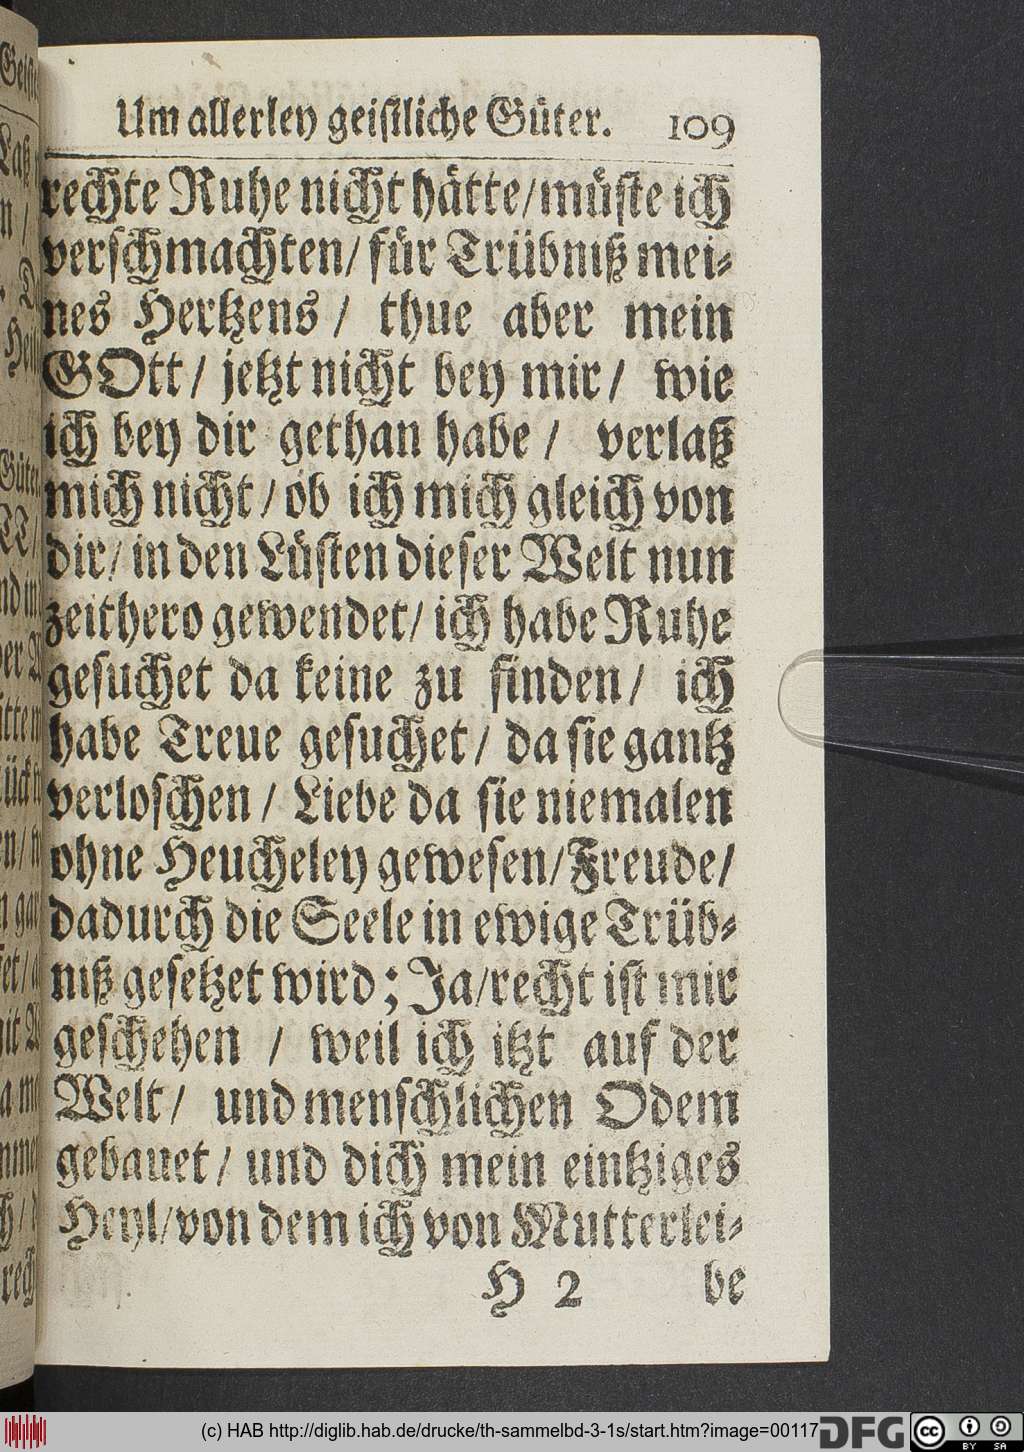 Um allerley geistliche Güter. 109
rechte Ruhe nicht hätte/müste ich
verschmachten/ für Trübniß mei-
nes Hertzens / thue aber mein
GOtt/ jetzt nicht bey mir/ wie
ich bey dir gethan habe / verlaß
mich nicht/ ob ich mich gleich von
dir/ in den Lüsten dieser Welt nun
zeithero gewendet/ ich habe Ruhe
gesuchet da keine zu finden/ ich
habe Treue gesuchet/ da sie gantz
verloschen / Liebe da sie niemalen
ohne Heucheley gewesen/Freude/
dadurch die Seele in ewige Trüb-
niß gesetzet wird; Ja/recht ist mir
geschehen / weil ich itzt auf der
Welt/ und menschlichen Odem
gebauet/ und dich mein eintziges
Heyl/von dem ich von Mutterlei-
H 2 be
(c) HAB http://diglib.hab.de/drucke/th-sammelbd-3-1s/start.htm?image=00117
DFG
cc
BY SA